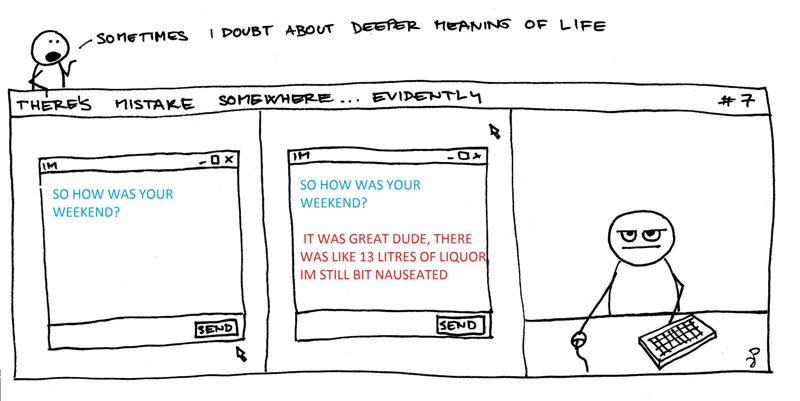 SOMETIMES I DOUBT ABOUT DEEPER MEANING OF LIFE
THERE'S MISTAKE SOMEWHERE... EVIDENTLY #7
IM
SO HOW WAS YOUR
WEEKEND?
SEND
IM
SO HOW WAS YOUR
WEEKEND?
IT WAS GREAT DUDE, THERE
WAS LIKE 13 LITRES OF LIQUOR,
IM STILL BIT NAUSEATED
SEND